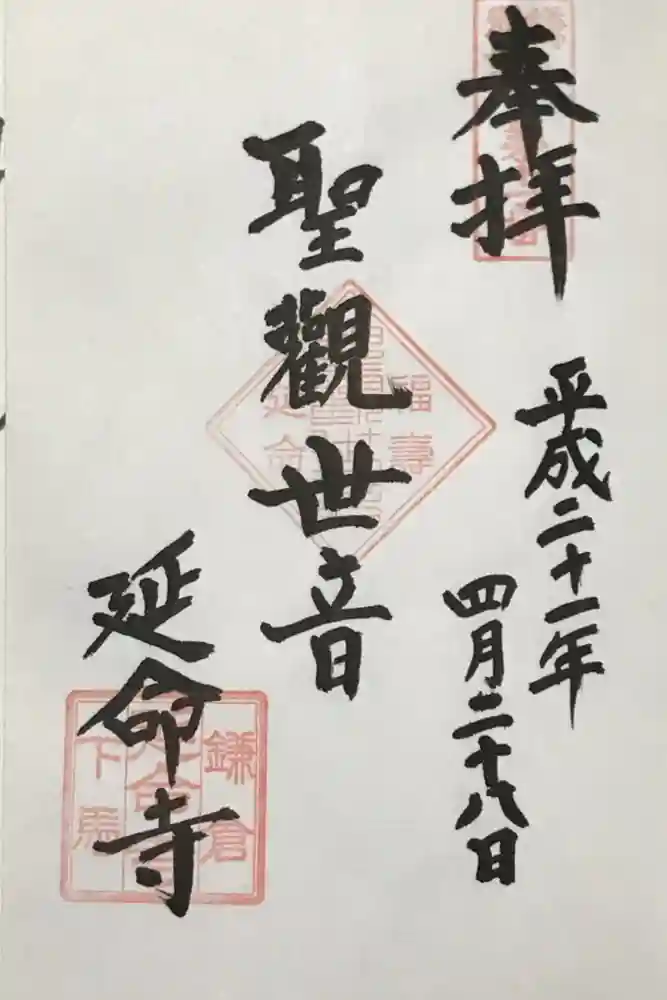 奉拝
平成二十一年
四月二十八日
聖觀世音
福壽
延命
延命寺
鎌倉
延命寺
下馬